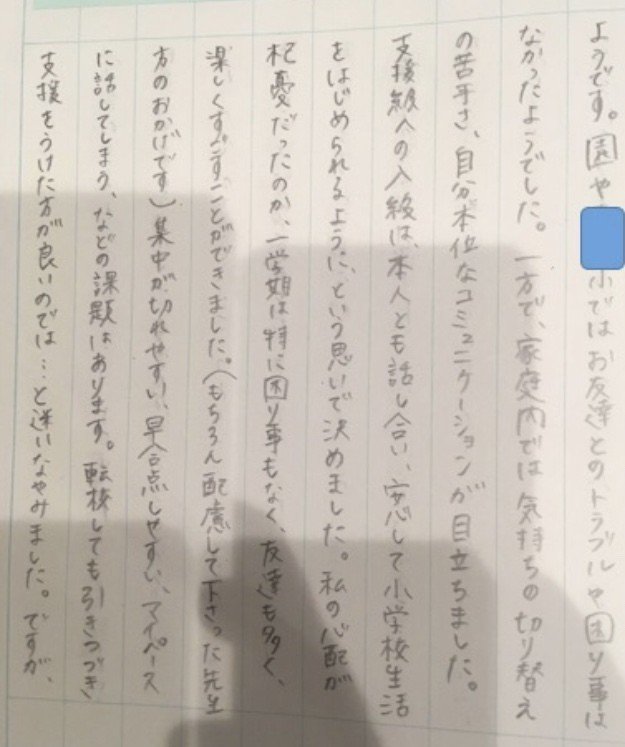 ようです。園や小ではお友達とのトラブルや困り事は
なかったようでした。一方で、家庭内では気持ちの切り替え
の苦手さ、自分本位なコミュニケーションが目立ちました。
支援級への入級は、本人とも話し合い、安心して小学校生活
をはじめられるように、という思いで決めました。私の心配が
杞憂だったのか、一学期は特に困り事もなく、友達も多く、
楽しくすごすことができました。（もちろん配慮して下さった先生
方のおかげです）集中が切れやすい、早合点しやすい、マイペース
に話してしまう、などの課題はあります。転校しても引きつづき
支援をうけた方が良いのでは…と迷いなやみました。ですが、